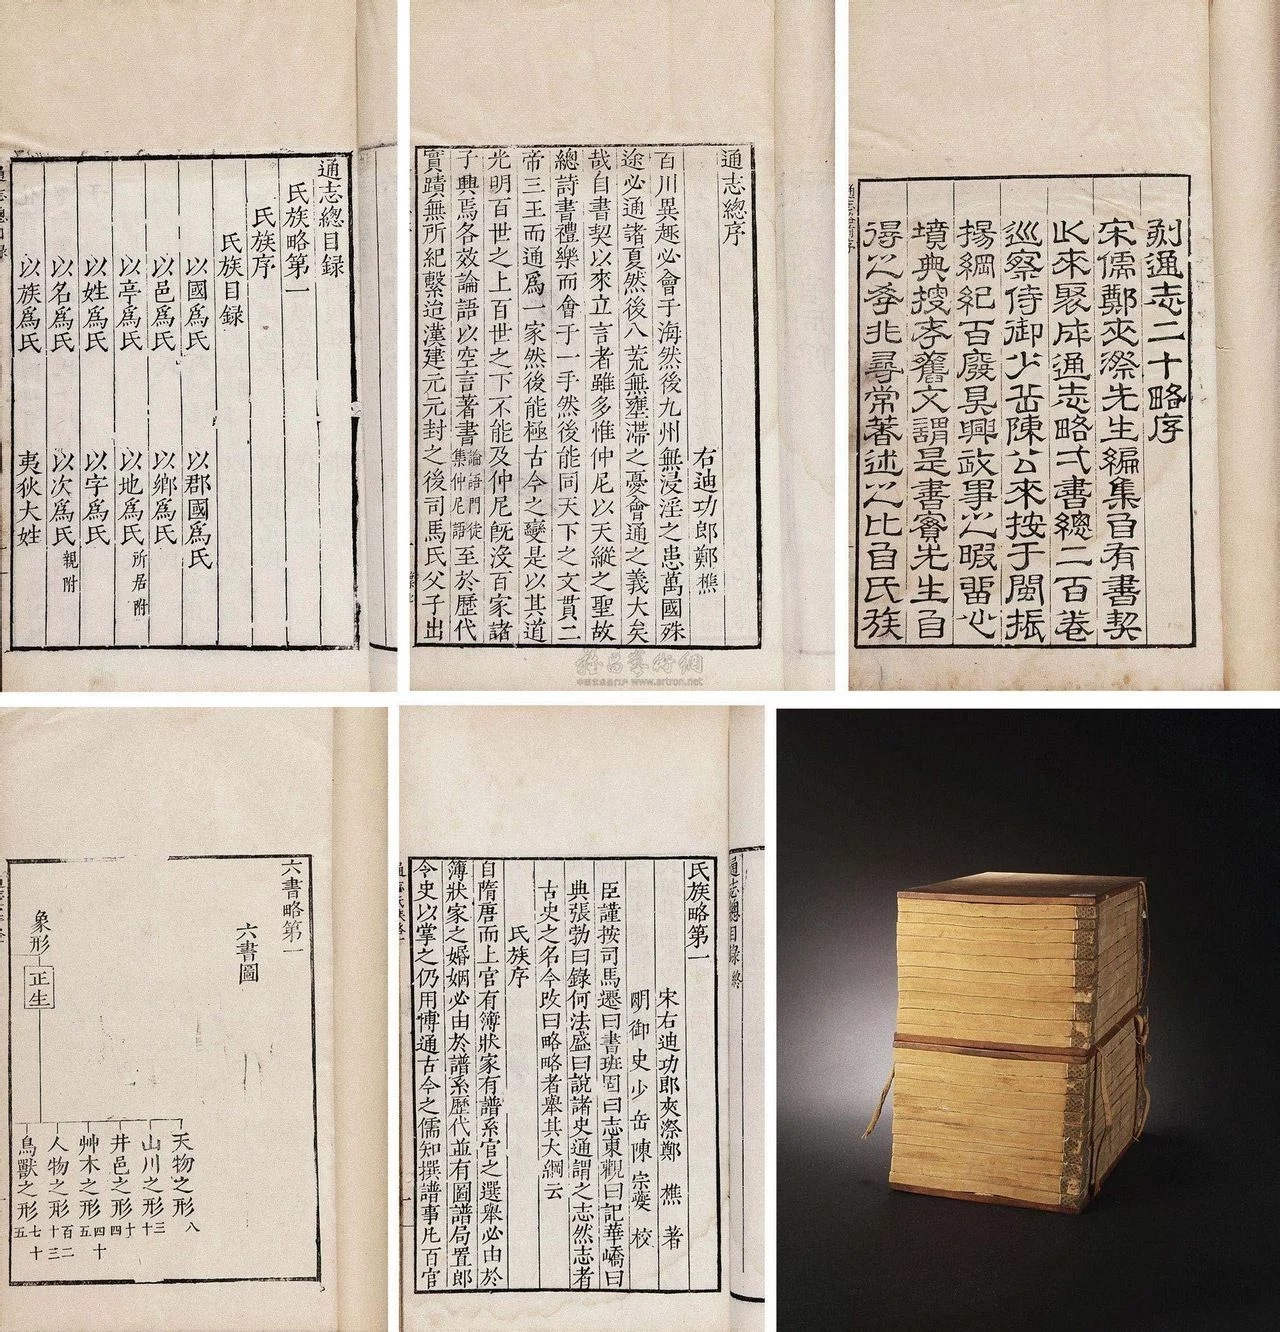 通志總目録
氏族略第一
氏族序
氏族目録
以國爲氏 以郡國爲氏
以邑爲氏 以鄉爲氏
以亭爲氏 以地爲氏所居附
以姓爲氏 以字爲氏
以名爲氏 以次爲氏親附
以族爲氏 夷狄大姓
通志總序
右迪功郎鄭樵
百川異趨必會于海然後九州無浸淫之患萬國殊
途必通諸夏然後八荒無壅滯之憂會通之義大矣
哉自書契以來立言者雖多惟仲尼以天縱之聖故
總詩書禮樂而會于一手然後能同天下之文貫二
帝三王而通爲一家然後能極古今之變是以其道
光明百世之上百世之下不能及仲尼既沒百家諸
子興焉各效論語以空言著書論語門徒集仲尼語至於歷代
實蹟無所紀繫迨漢建元元封之後司馬氏父子出
雅昌藝術網
www.artron.net
刻通志二十略序
宋儒鄭夾漈先生編集自有書契
以來聚成通志略弍書總二百卷
巡察侍御少岳陳公來按于閩振
揚綱紀百廢具興政事之暇留心
墳典搜李舊文謂是書賓先生自
得之季非尋常著述之比自氏族
六書略第一
六書圖
象形
正生
天物之形八
山川之形三十
井邑之形十四
艸木之形四十五
人物之形百二十三
鳥獸之形七十五
通志總目録終
氏族略第一
宋右迪功郎夾漈鄭 樵 著
明御史少岳陳宗夔 校
臣謹按司馬遷曰書班固曰志東觀曰記華嶠曰
典張勃曰錄何法盛曰說諸史通謂之志然志者
古史之名今改曰略略者舉其大綱云
氏族序
自隋唐而上官有簿狀家有譜系官之選舉必由於
簿狀家之婚姻必由於譜系歷代並有圖譜局置郎
令史以掌之仍用博通古今之儒知撰譜事凡百官